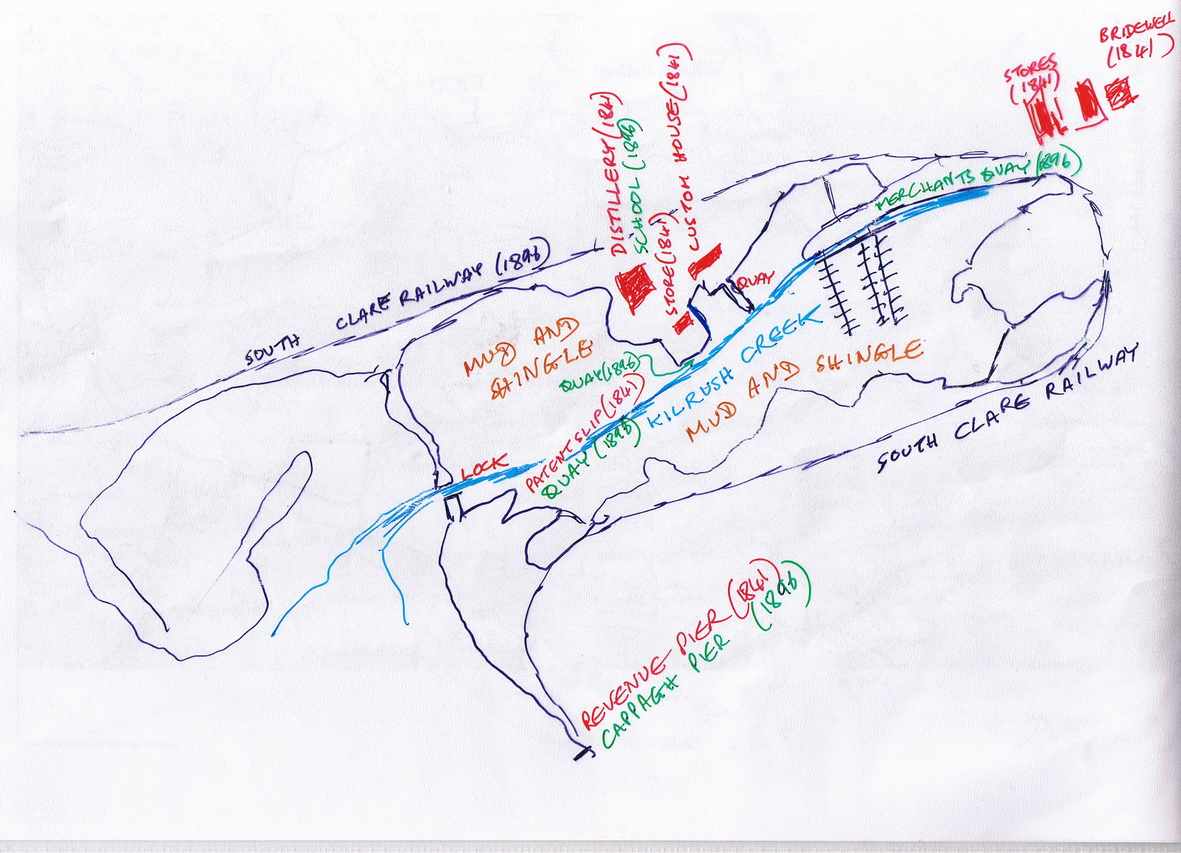 BRIDEWELL
(1841)
STORES
(1841)
DISTILLERY (1841)
SCHOOL (1896)
STORE (1841)
CUSTOM HOUSE (1841)
MERCHANTS QUAY (1896)
SOUTH CLARE RAILWAY (1896)
QUAY
MUD AND
SHINGLE
QUAY (1896)
KILRUSH CREEK
MUD AND SHINGLE
PATENT SLIP (1841)
QUAY (1896)
LOCK
SOUTH CLARE RAILWAY
REVENUE PIER (1841)
CAPPAGH PIER (1896)